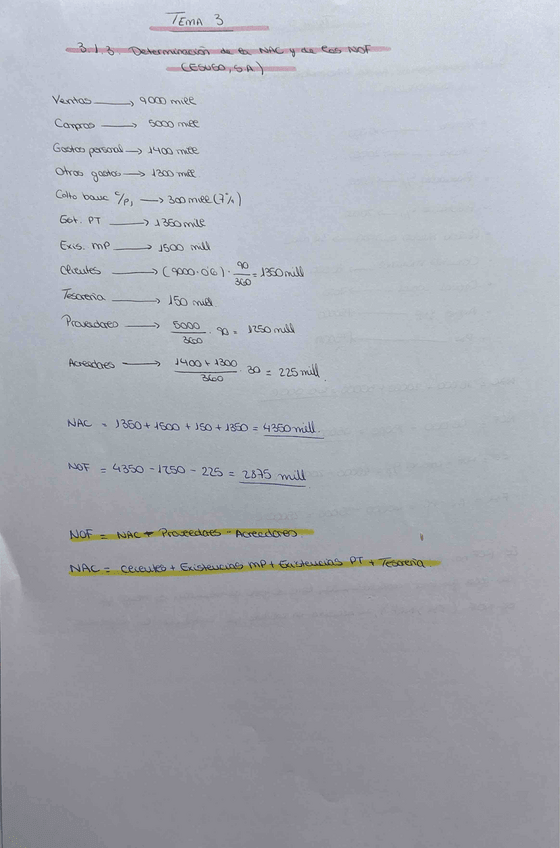 TEMA 3
3.1.3. Determinación de la NAC y de las NOF
(ESUSO, S.A)
Ventas → 9000 mill
Compras → 5000 mill
Gastos personal → 1400 mill
Otros gastos → 1300 mill
Cdto banc c/p, → 300 mill (7%)
Ext. PT → 1350 mill
Exis. MP → 1500 mill
Clientes → (9000·0'6) · 90/360 = 1350 mill
Tesorería → 150 mill
Proveedores → 5000/360 · 90 = 1250 mill
Acreedores → 1400 + 1300/360 · 30 = 225 mill.
NAC = 1350 + 1500 + 150 + 1350 = 4350 mill.
NOF = 4350 - 1250 - 225 = 2875 mill
NOF = NAC - Proveedores - Acreedores
NAC = Clientes + Existencias MP + Existencias PT + Tesorería